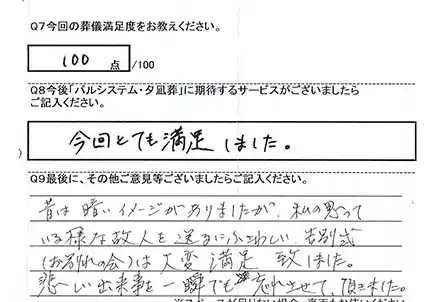 Q7今回の葬儀満足度をお教えください。
100 点 /100
Q8今後「パルシステム・夕凪葬」に期待するサービスがございましたら
ご記入ください。
今回とても満足しました。
Q9最後に、その他ご意見等ございましたらご記入ください。
昔は暗いイメージがありましたが、私の思って
いる様な故人を送るにふさわしい告別式
(お別れの会)は大変満足致しました。
悲しい出来事を一瞬でも忘れさせて、頂きました。